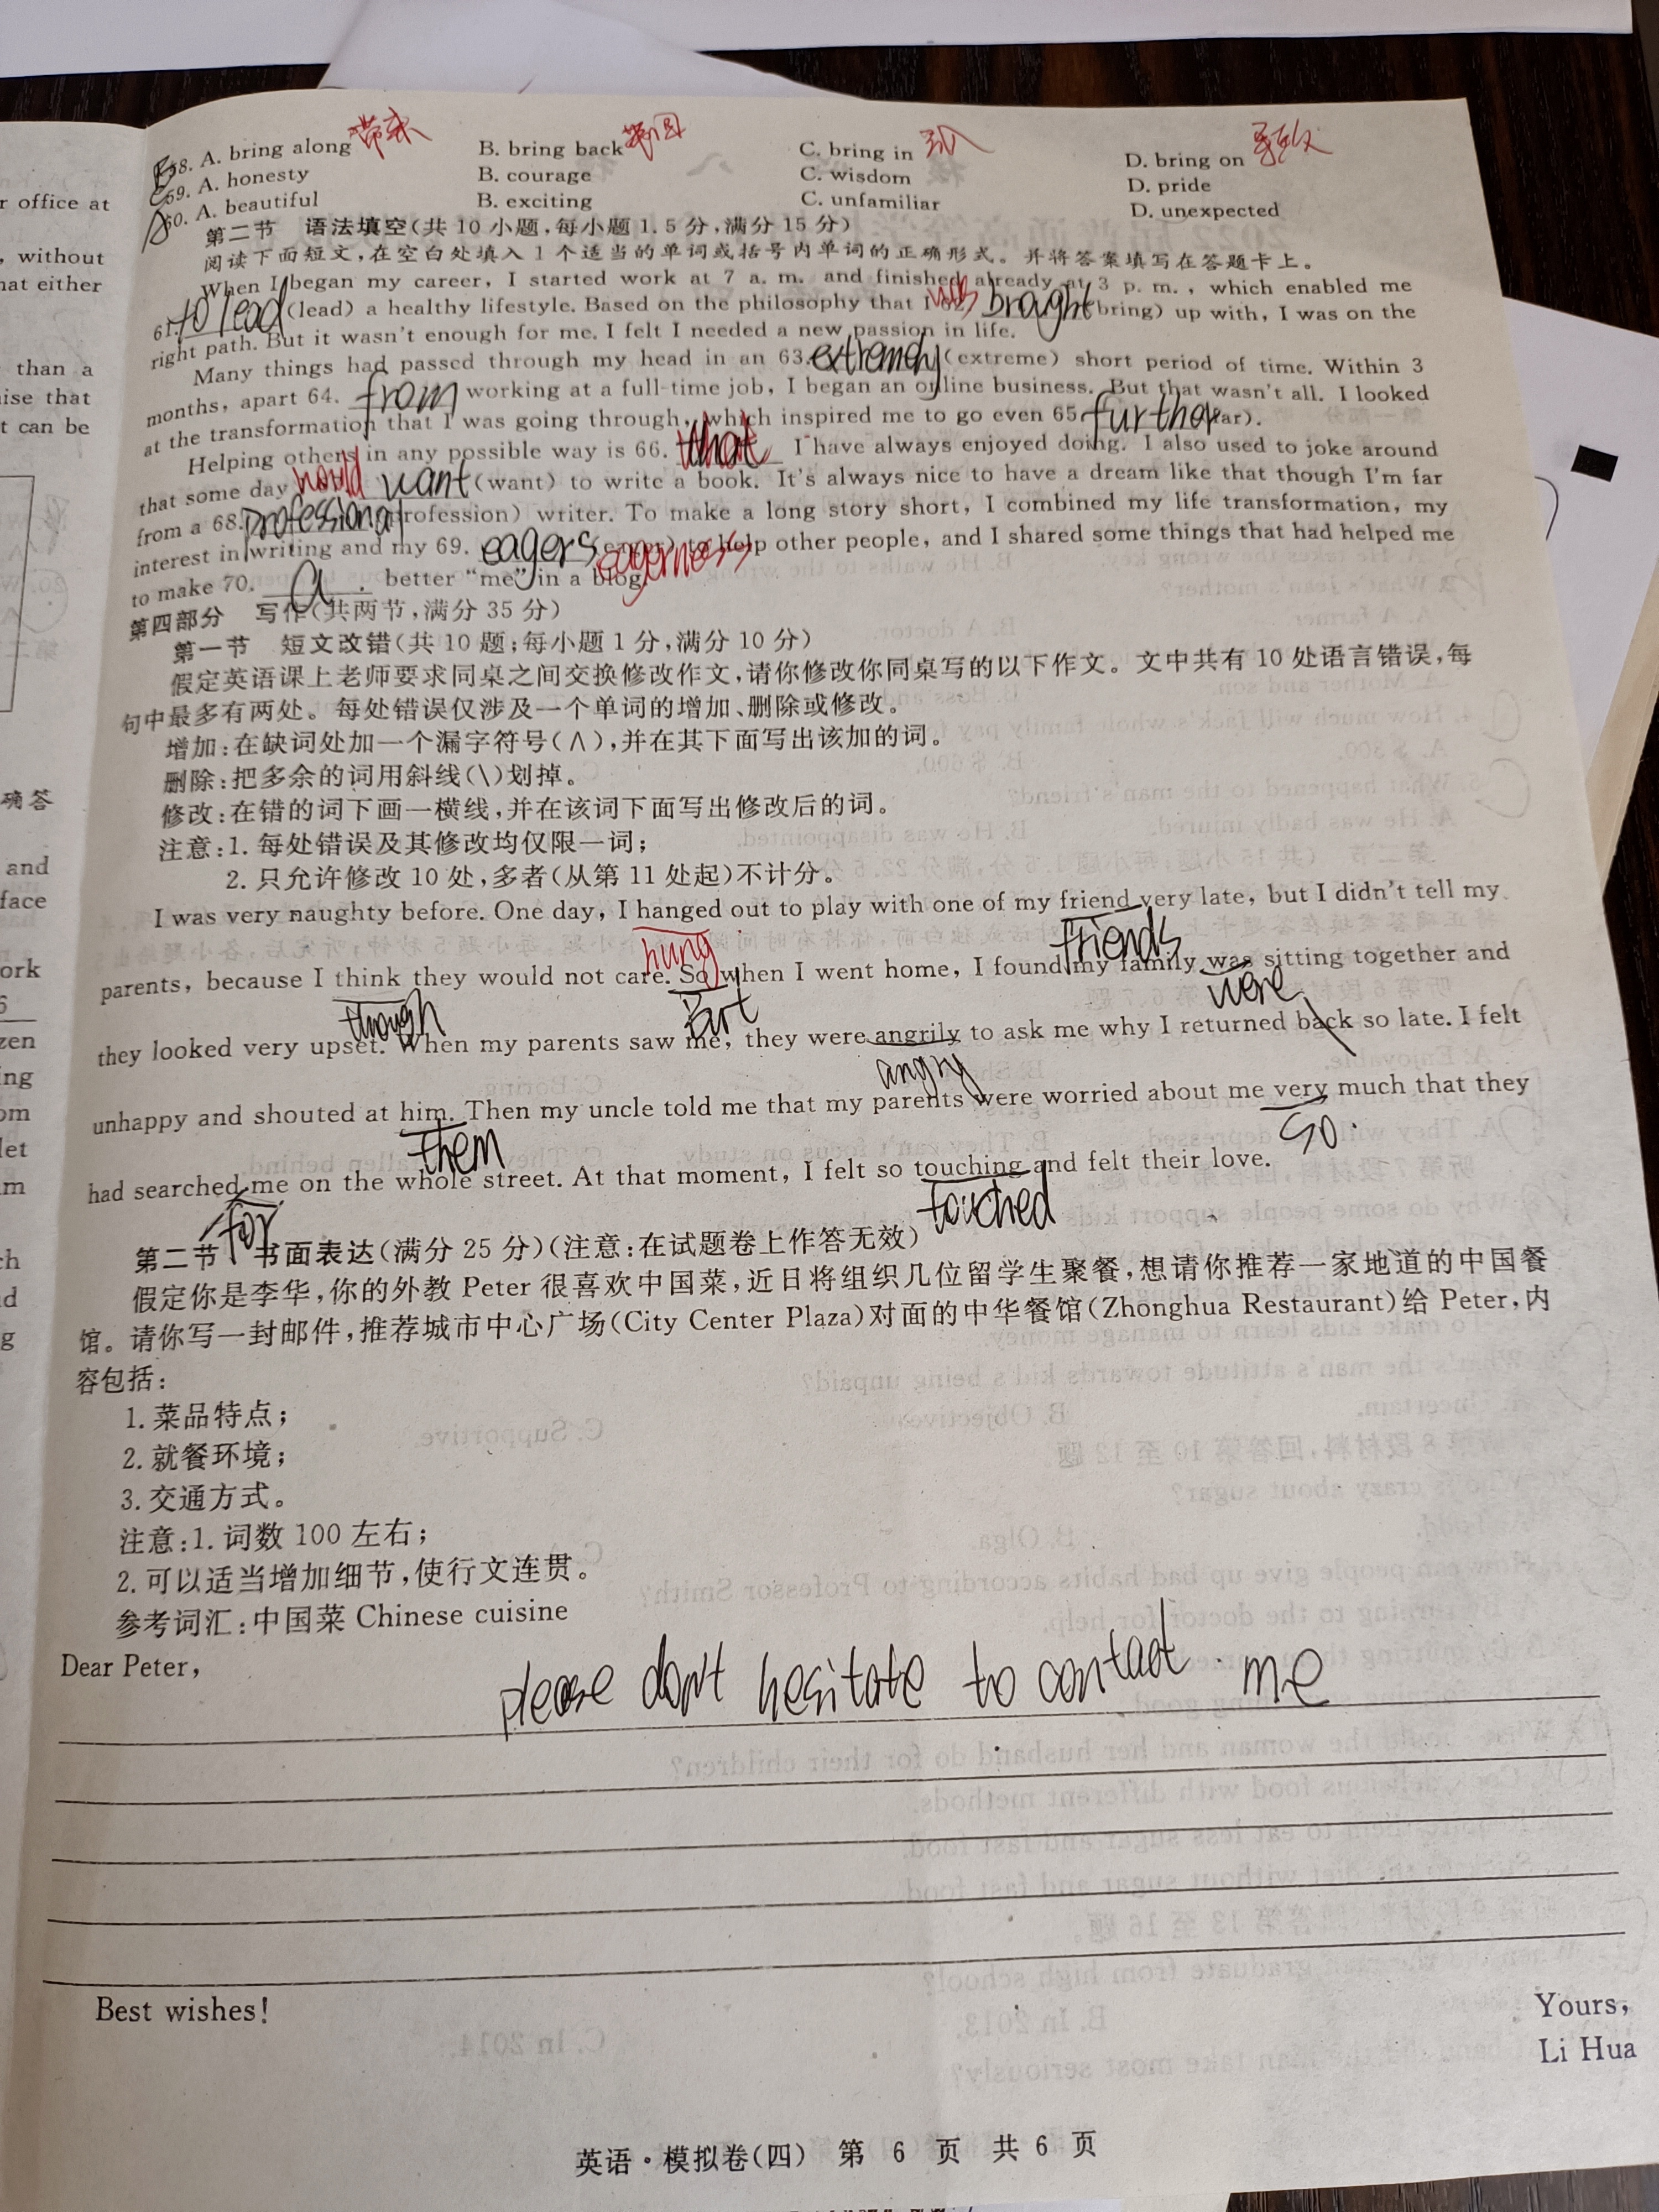 r office at
, without
nat either
than a
ise that
t can be
确答
and
face
ork
6
zen
ing
om
let
m
ch
id
g
B 58. A. bring along 带来 B. bring back 带回 C. bring in 引入 D. bring on 导致
C 59. A. honesty B. courage C. wisdom D. pride
D 60. A. beautiful B. exciting C. unfamiliar D. unexpected
第二节 语法填空(共 10 小题,每小题 1. 5 分,满分 15 分)
阅读下面短文,在空白处填入 1 个适当的单词或括号内单词的正确形式。并将答案填写在答题卡上。
When I began my career, I started work at 7 a. m. and finished already at 3 p. m. , which enabled me
61. to lead (lead) a healthy lifestyle. Based on the philosophy that I was brought (bring) up with, I was on the
right path. But it wasn't enough for me. I felt I needed a new passion in life.
Many things had passed through my head in an 63. extremely (extreme) short period of time. Within 3
months, apart 64. from working at a full-time job, I began an online business. But that wasn't all. I looked
at the transformation that I was going through, which inspired me to go even 65. further (far).
Helping others in any possible way is 66. what I have always enjoyed doing. I also used to joke around
that some day would want (want) to write a book. It's always nice to have a dream like that though I'm far
from a 68. professional (profession) writer. To make a long story short, I combined my life transformation, my
interest in writing and my 69. eagers eagerness to help other people, and I shared some things that had helped me
to make 70. a better "me" in a blog
第四部分 写作(共两节,满分 35 分)
第一节 短文改错(共 10 题;每小题 1 分,满分 10 分)
假定英语课上老师要求同桌之间交换修改作文,请你修改你同桌写的以下作文。文中共有 10 处语言错误,每
句中最多有两处。每处错误仅涉及一个单词的增加、删除或修改。
增加:在缺词处加一个漏字符号(∧),并在其下面写出该加的词。
删除:把多余的词用斜线(\)划掉。
修改:在错的词下画一横线,并在该词下面写出修改后的词。
注意:1. 每处错误及其修改均仅限一词;
2. 只允许修改 10 处,多者(从第 11 处起)不计分。
I was very naughty before. One day, I hanged out to play with one of my friend very late, but I didn't tell my
hung friends
parents, because I think they would not care. So when I went home, I found my family was sitting together and
though But were
they looked very upset. When my parents saw me, they were angrily to ask me why I returned back so late. I felt
angry \
unhappy and shouted at him. Then my uncle told me that my parents were worried about me very much that they
them so
had searched me on the whole street. At that moment, I felt so touching and felt their love.
∧ for touched
第二节 书面表达(满分 25 分)(注意:在试题卷上作答无效)
假定你是李华,你的外教 Peter 很喜欢中国菜,近日将组织几位留学生聚餐,想请你推荐一家地道的中国餐
馆。请你写一封邮件,推荐城市中心广场(City Center Plaza)对面的中华餐馆(Zhonghua Restaurant)给 Peter,内
容包括:
1. 菜品特点;
2. 就餐环境;
3. 交通方式。
注意:1. 词数 100 左右;
2. 可以适当增加细节,使行文连贯。
参考词汇:中国菜 Chinese cuisine
Dear Peter,
please don't hesitate to contact me
Best wishes!
Yours,
Li Hua
英语·模拟卷(四) 第 6 页 共 6 页